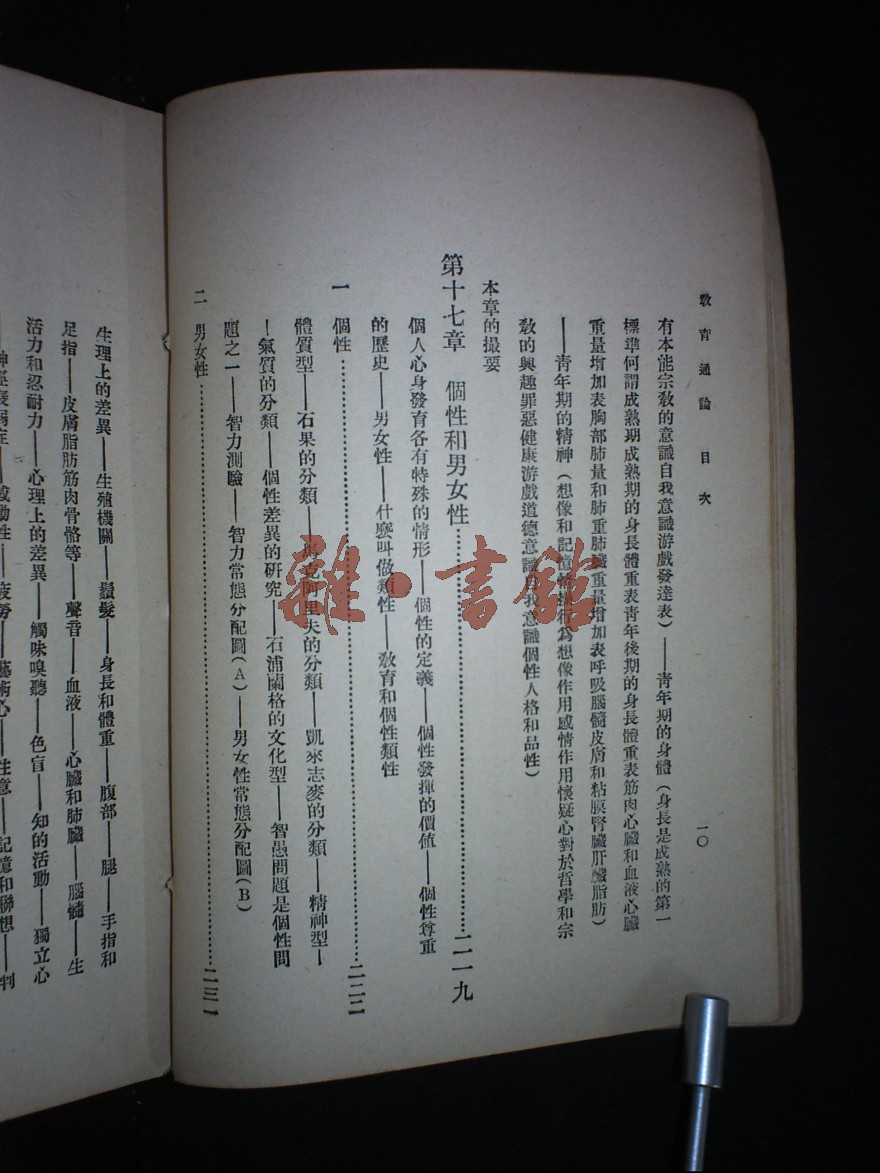 教育通論 目次
一〇
有本能宗教的意識自我意識游戲發達表)——靑年期的身體(身長是成熟的第一
標準何謂成熟期成熟期的身長體重表靑年後期的身長體重表筋肉心臟和血液心臟
重量增加表胸部肺量和肺重肺臟重量增加表呼吸腦髓皮膚和粘膜腎臟肝臟脂肪)
——靑年期的精神(想像和記憶 行爲想像作用感情作用懷疑心對於哲學和宗
敎的興趣罪惡健康游戲道德意識自我意識個性人格和品性)
本章的撮要
第十七章 個性和男女性……二一九
個人心身發育各有特殊的情形——個性的定義——個性發揮的價值——個性尊重
的歷史——男女性——什麽叫做類性——敎育和個性類性
一 個性……二二二
體質型——石果的分類——克阿里夫的分類——凱來志麥的分類——精神型—
—氣質的分類——個性差異的硏究——石浦闌格的文化型——智愚問題是個性問
題之一——智力測驗——智力常態分配圖(A)——男女性常態分配圖(B)
二 男女性……二三一
生理上的差異——生殖機關——鬚髮——身長和體重——腹部——腿——手指和
足指——皮膚脂肪筋肉骨骼等——聲音——血液——心臟和肺臟——腦髓——生
活力和忍耐力——心理上的差異——觸味嗅聽——色盲——知的活動——獨立心
——神經衰弱症——感動性——疲勞——藝術心——注意——記憶和聯想——判
雜·書館